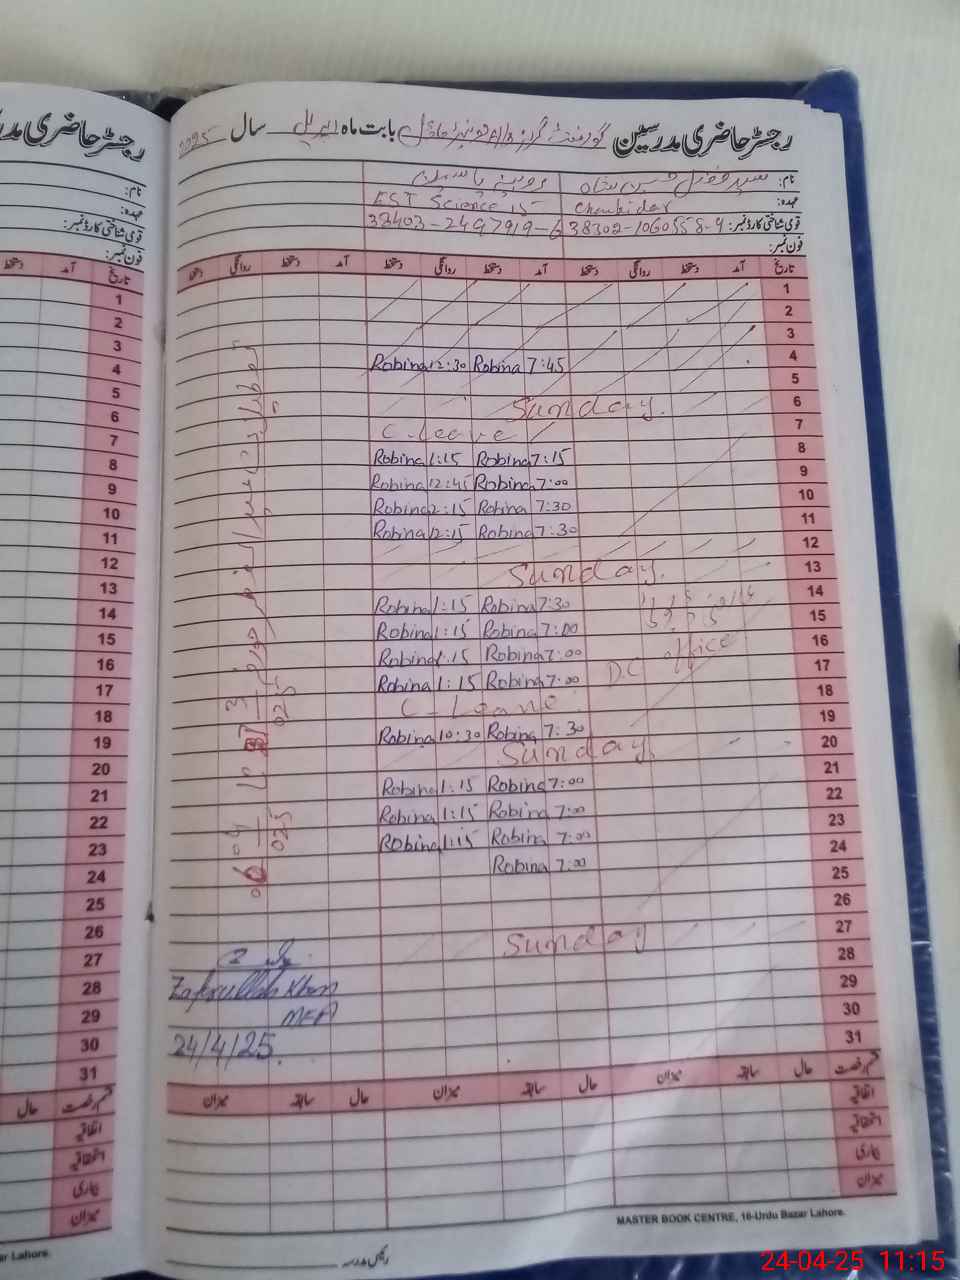 رجسٹر حاضری مدرسین گورنمنٹ گرلز ماڈل بابت ماہ اپریل سال 2025
نام: سید فضل حسین شاہ روبینہ یاسمین
عہدہ: Chowkidar EST Science 15
قومی شناختی کارڈ نمبر: 38302-1060558-4 38403-2497919-6
فون نمبر:
تاریخ آمد دستخط روانگی دستخط آمد دستخط روانگی دستخط آمد دستخط روانگی دستخط
1
2
3
4 7:45 Robina 12:30 Robina
5
6 Sunday
7 C-leave
8 7:15 Robina 1:15 Robina
9 7:00 Robina 12:45 Robina
10 7:30 Robina 12:15 Robina
11 7:30 Robina 12:15 Robina
12
13 Sunday
14 7:30 Robina 1:15 Robina
15 7:00 Robina 1:15 Robina
16 7:00 Robina 1:15 Robina
17 D.C office 7:00 Robina 1:15 Robina
18 C-Leave
19 7:30 Robina 10:30 Robina
20 Sunday
21 7:00 Robina 1:15 Robina
22 7:00 Robina 1:15 Robina
23 7:00 Robina 1:15 Robina
24 7:00 Robina
25
26
27 Sunday
28
29
30
31
Zafarullah Khan
MEA
24/4/25.
قسم رخصت حال سابقہ میزان حال سابقہ میزان حال سابقہ میزان
اتفاقیہ
استحقاقیہ
بیماری
میزان
MASTER BOOK CENTRE, 16-Urdu Bazar Lahore.
رئیس مدرسہ
رجسٹر حاضری مدر
نام:
عہدہ:
قومی شناختی کارڈ نمبر:
فون نمبر:
تاریخ
1
2
3
4
5
6
7
8
9
10
11
12
13
14
15
16
17
18
19
20
21
22
23
24
25
26
27
28
29
30
31
قسم رخصت حال
اتفاقیہ
استحقاقیہ
بیماری
میزان
ar Lahore.
24-04-25 11:15